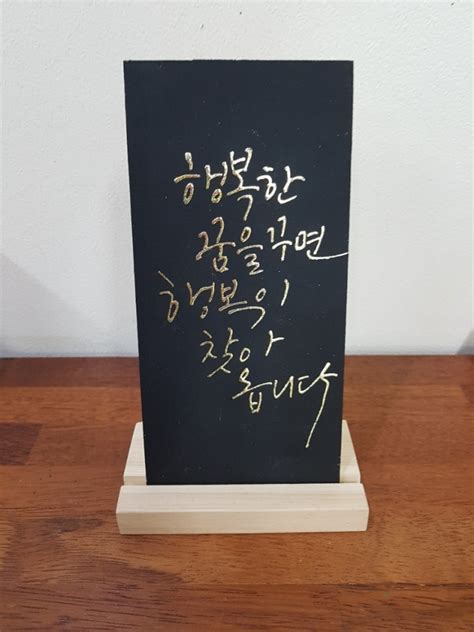 행복한
꿈을꾸면
행복이
찾아
옵니다